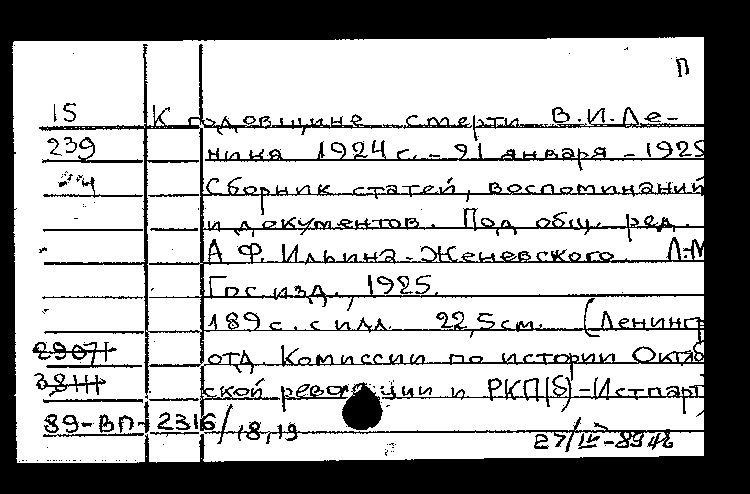 П
15 К годовщине смерти В.И.Ле-
239 нина 1924 г. - 21 января - 1925
Сборник статей, воспоминаний
и документов. Под общ. ред.
А.Ф. Ильина-Женевского. Л-М
Гос. изд., 1925.
189 с. с илл. 22,5 см. (Ленингр
отд. Комиссии по истории Октяб
ской революции и РКП(б)-Истпарт)
89-ВП-2316/18,19